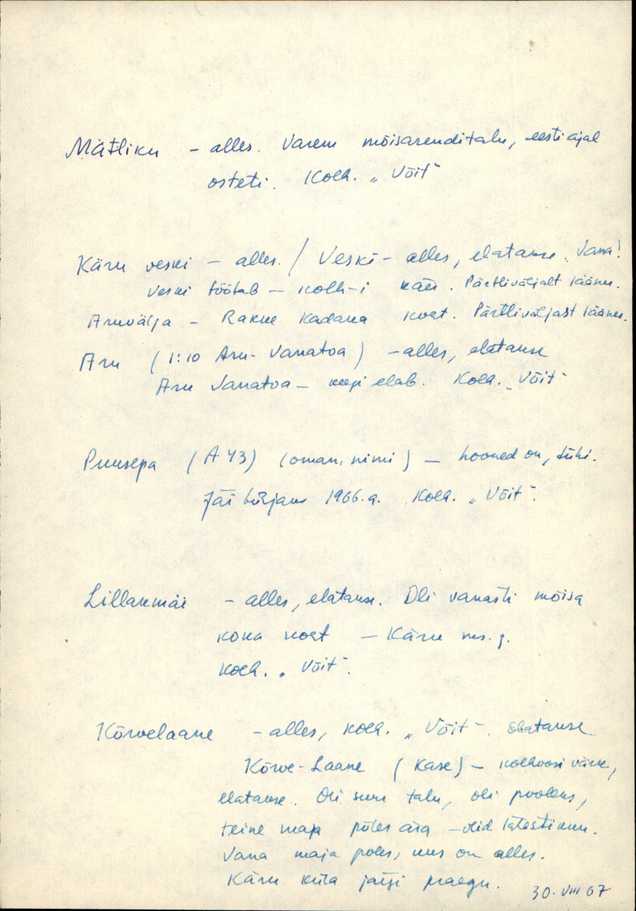 Mätliku - alles. Varem mõisarenditalu, eesti ajal
osteti. Kolh. „Võit"
Käru veski - alles. / Veski - alles, elatakse. Vana!
Veski töötab - kolh-i käes. Pärtliväljalt lääne.
Aruvälja - Rakke Kadaka Pärtliväljast lääne.
Aru (1:10 Aru-Vanatoa) - alles, elatakse
Aru Vanatoa - keegi elab. Kolh. „Võit"
Puusepa (A 43) (oman. nimi) - hooned on, tühi.
Jäi tühjaks 1966.a. Kolh. „Võit".
Lillakmäe - alles, elatakse. Oli vanasti mõisa
koha - Käru ms. j.
Kolh. „Võit".
Kõrvelaane - alles, kolh. „Võit". Elatakse
Kõrve-Laane (Kase) - kolhoosi
elatakse. Oli suur talu, oli pooleks,
teine maja põles ära - olid
Vana maja põles, uus on alles.
Käru küla järgi praegu.
30. VIII 67